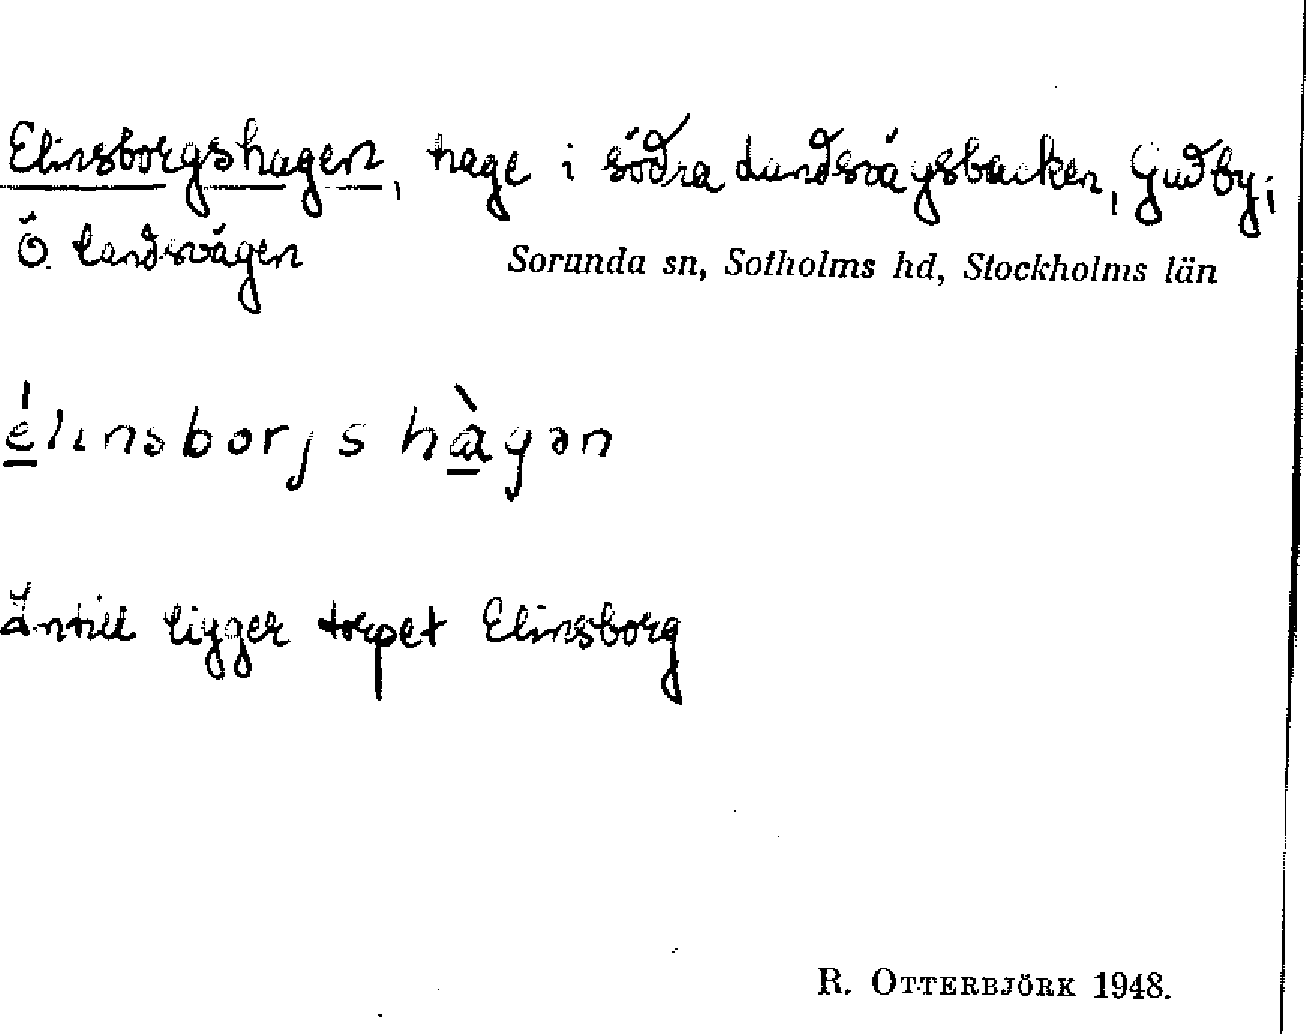 Elinsborgshagen, hage i södra Landsvägsbacken, Gudby;
Ö. landsvägen
Sorunda sn, Sotholms hd, Stockholms län
élinsborjs hàgən
Intill ligger torpet Elinsborg
R. OTTERBJÖRK 1948.